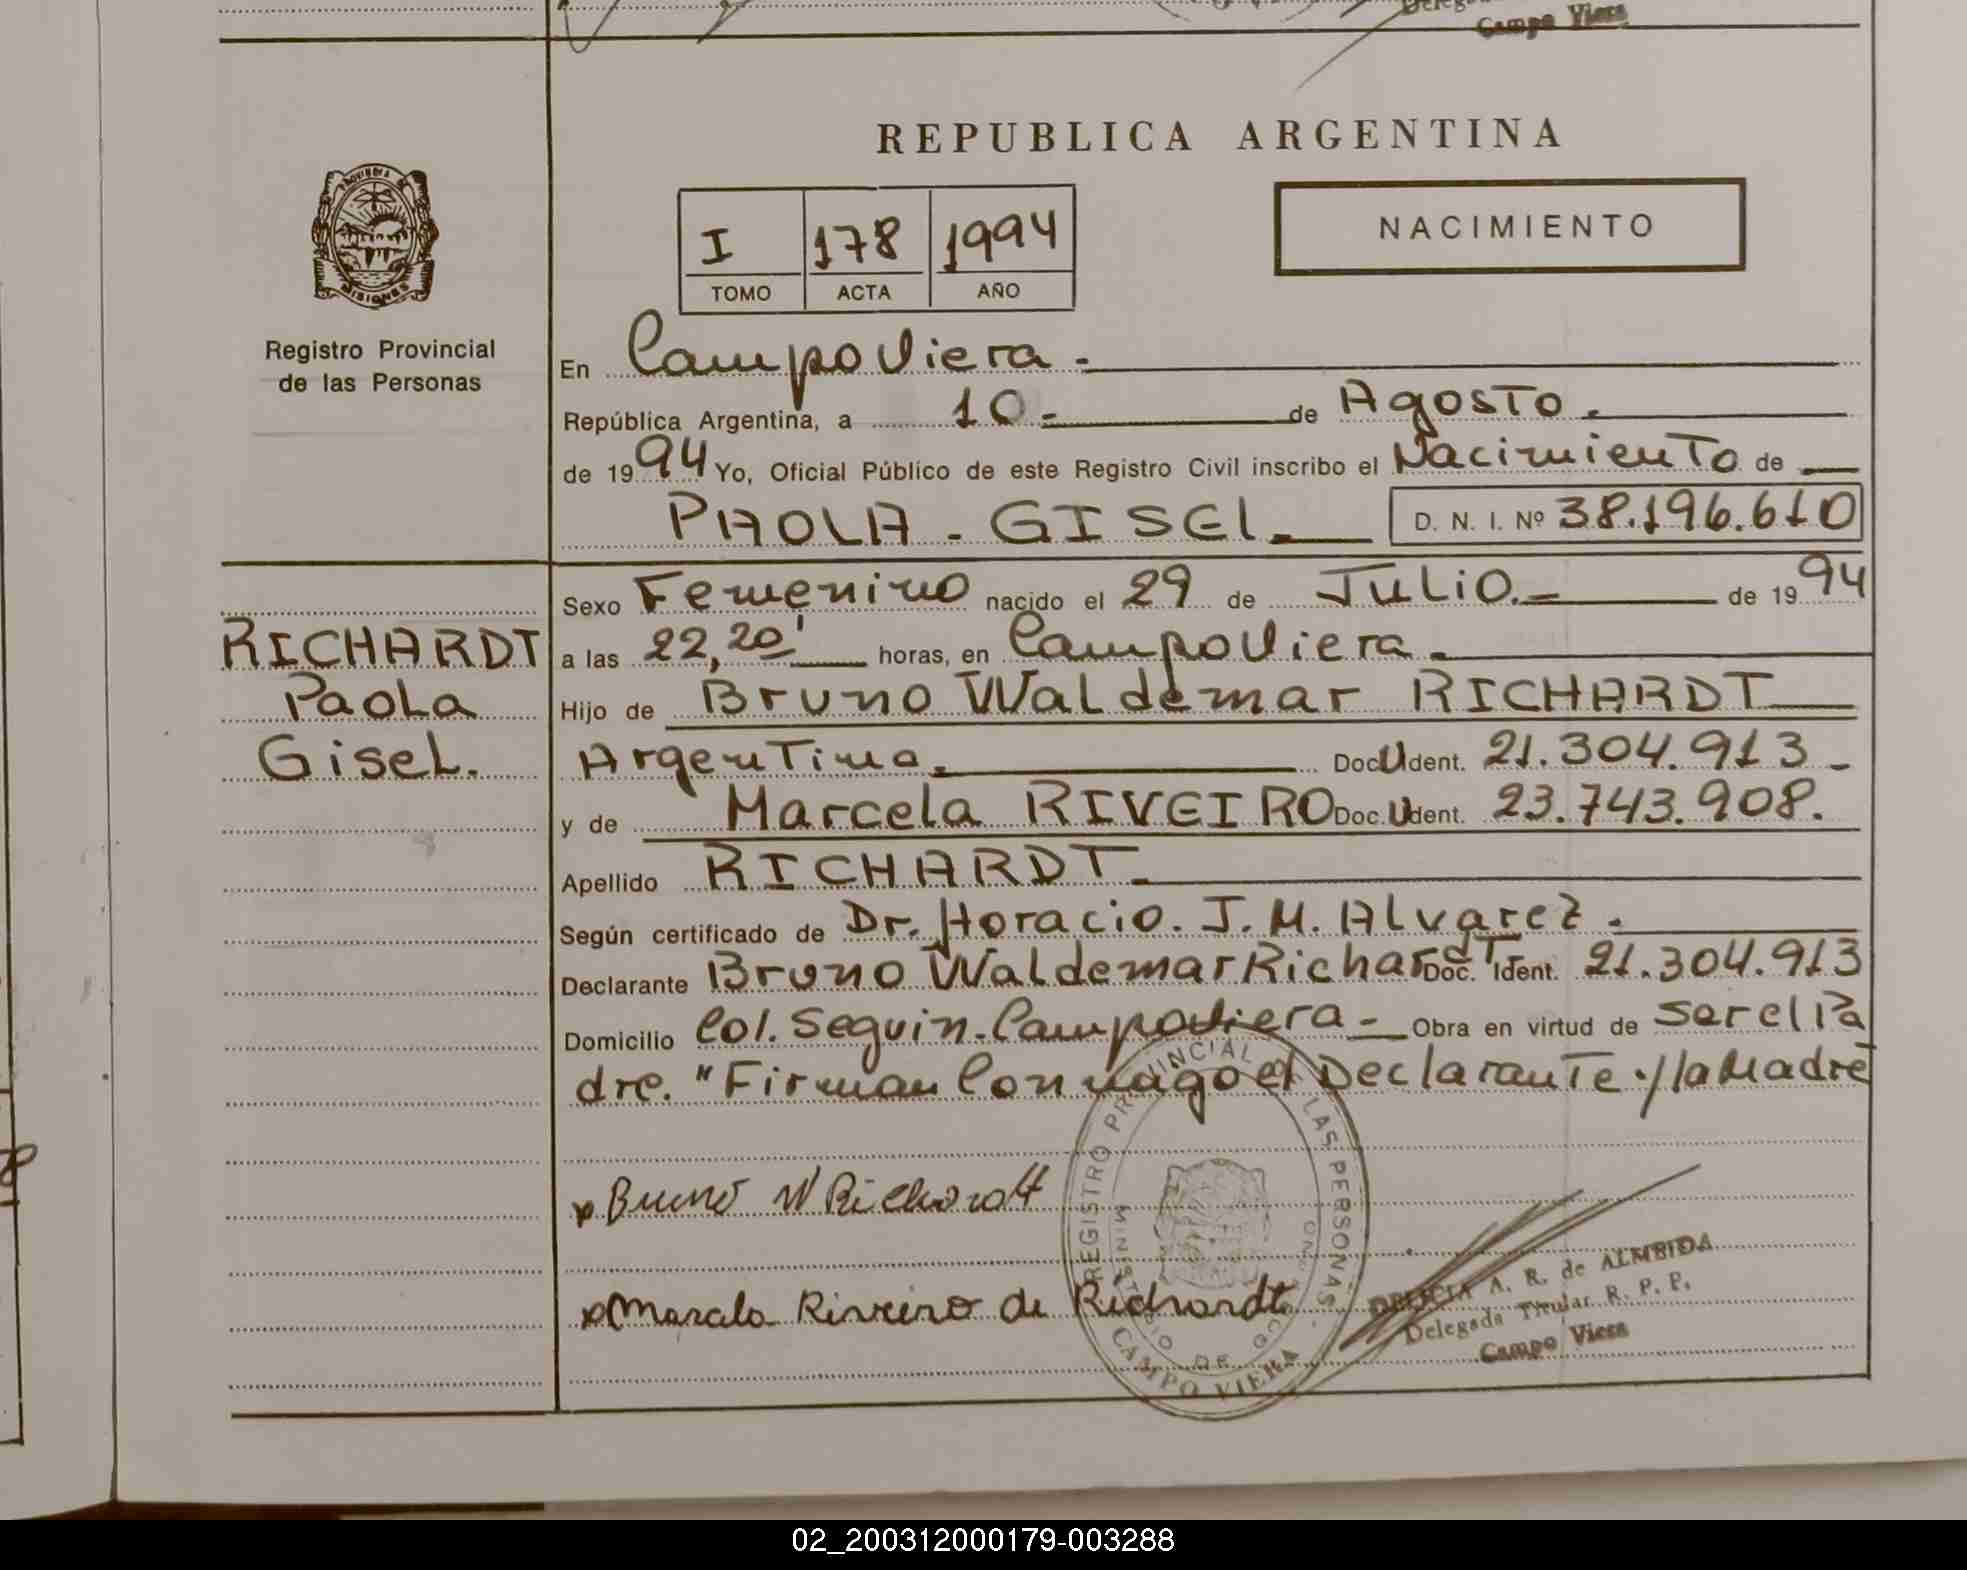 Campo Viera
REPUBLICA ARGENTINA
PROVINCIA DE
MISIONES
I 178 1994
TOMO ACTA AÑO
NACIMIENTO
Registro Provincial
de las Personas
En Campo Viera.-
República Argentina, a 10.- de Agosto.
de 1994 Yo, Oficial Público de este Registro Civil inscribo el Nacimiento de
PAOLA - GISEL. D. N. I. Nº 38.196.610
RICHARDT
Paola
Gisel.
Sexo Femenino nacido el 29 de Julio.- de 1994
a las 22,20' horas, en Campo Viera.
Hijo de Bruno Waldemar RICHARDT
Argentino. Doc. Ident. 21.304.913-
y de Marcela RIVEIRO Doc. Ident. 23.743.908.
Apellido RICHARDT
Según certificado de Dr. Horacio. J. M. Alvarez.
Declarante Bruno Waldemar Richardt Doc. Ident. 21.304.913
Domicilio Col. Seguin-Campo Viera- Obra en virtud de ser el Pa
dre. "Firman Conmigo el Declarante y la Madre
x Bruno W Richardt
x Marcela Riveiro de Richardt
REGISTRO PROVINCIAL LAS PERSONAS
MINISTERIO DE
CAMPO VIERA
A. R. de ALMEIDA
Delegada Titular R. P. P.
Campo Viera
02_200312000179-003288